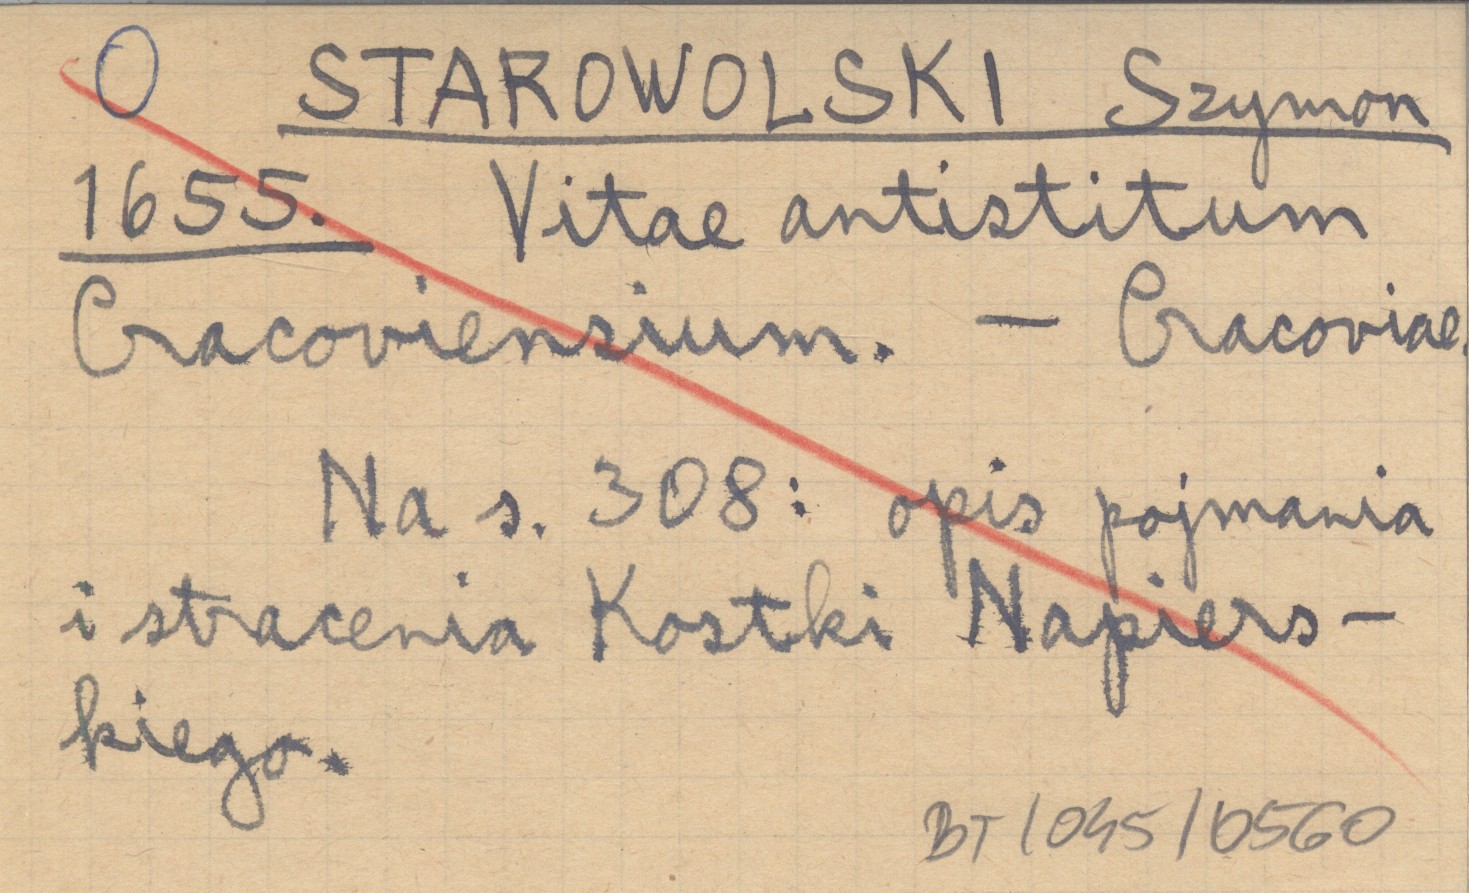 O STAROWOLSKI Szymon
1655. Vitae antistitum
Cracoviensium. – Cracoviae.
Na s. 308: opis pojmania
i stracenia Kostki Napiers-
kiego.
BT/045/0560